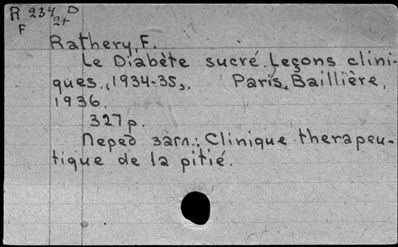 R 234 D
F 27
Rathery, F.
Le Diabète sucré. Leçons clini-
ques. (1934-35). Paris, Baillière,
1936.
327 p.
Перед загл.: Clinique therapeu-
tique de la pitié.